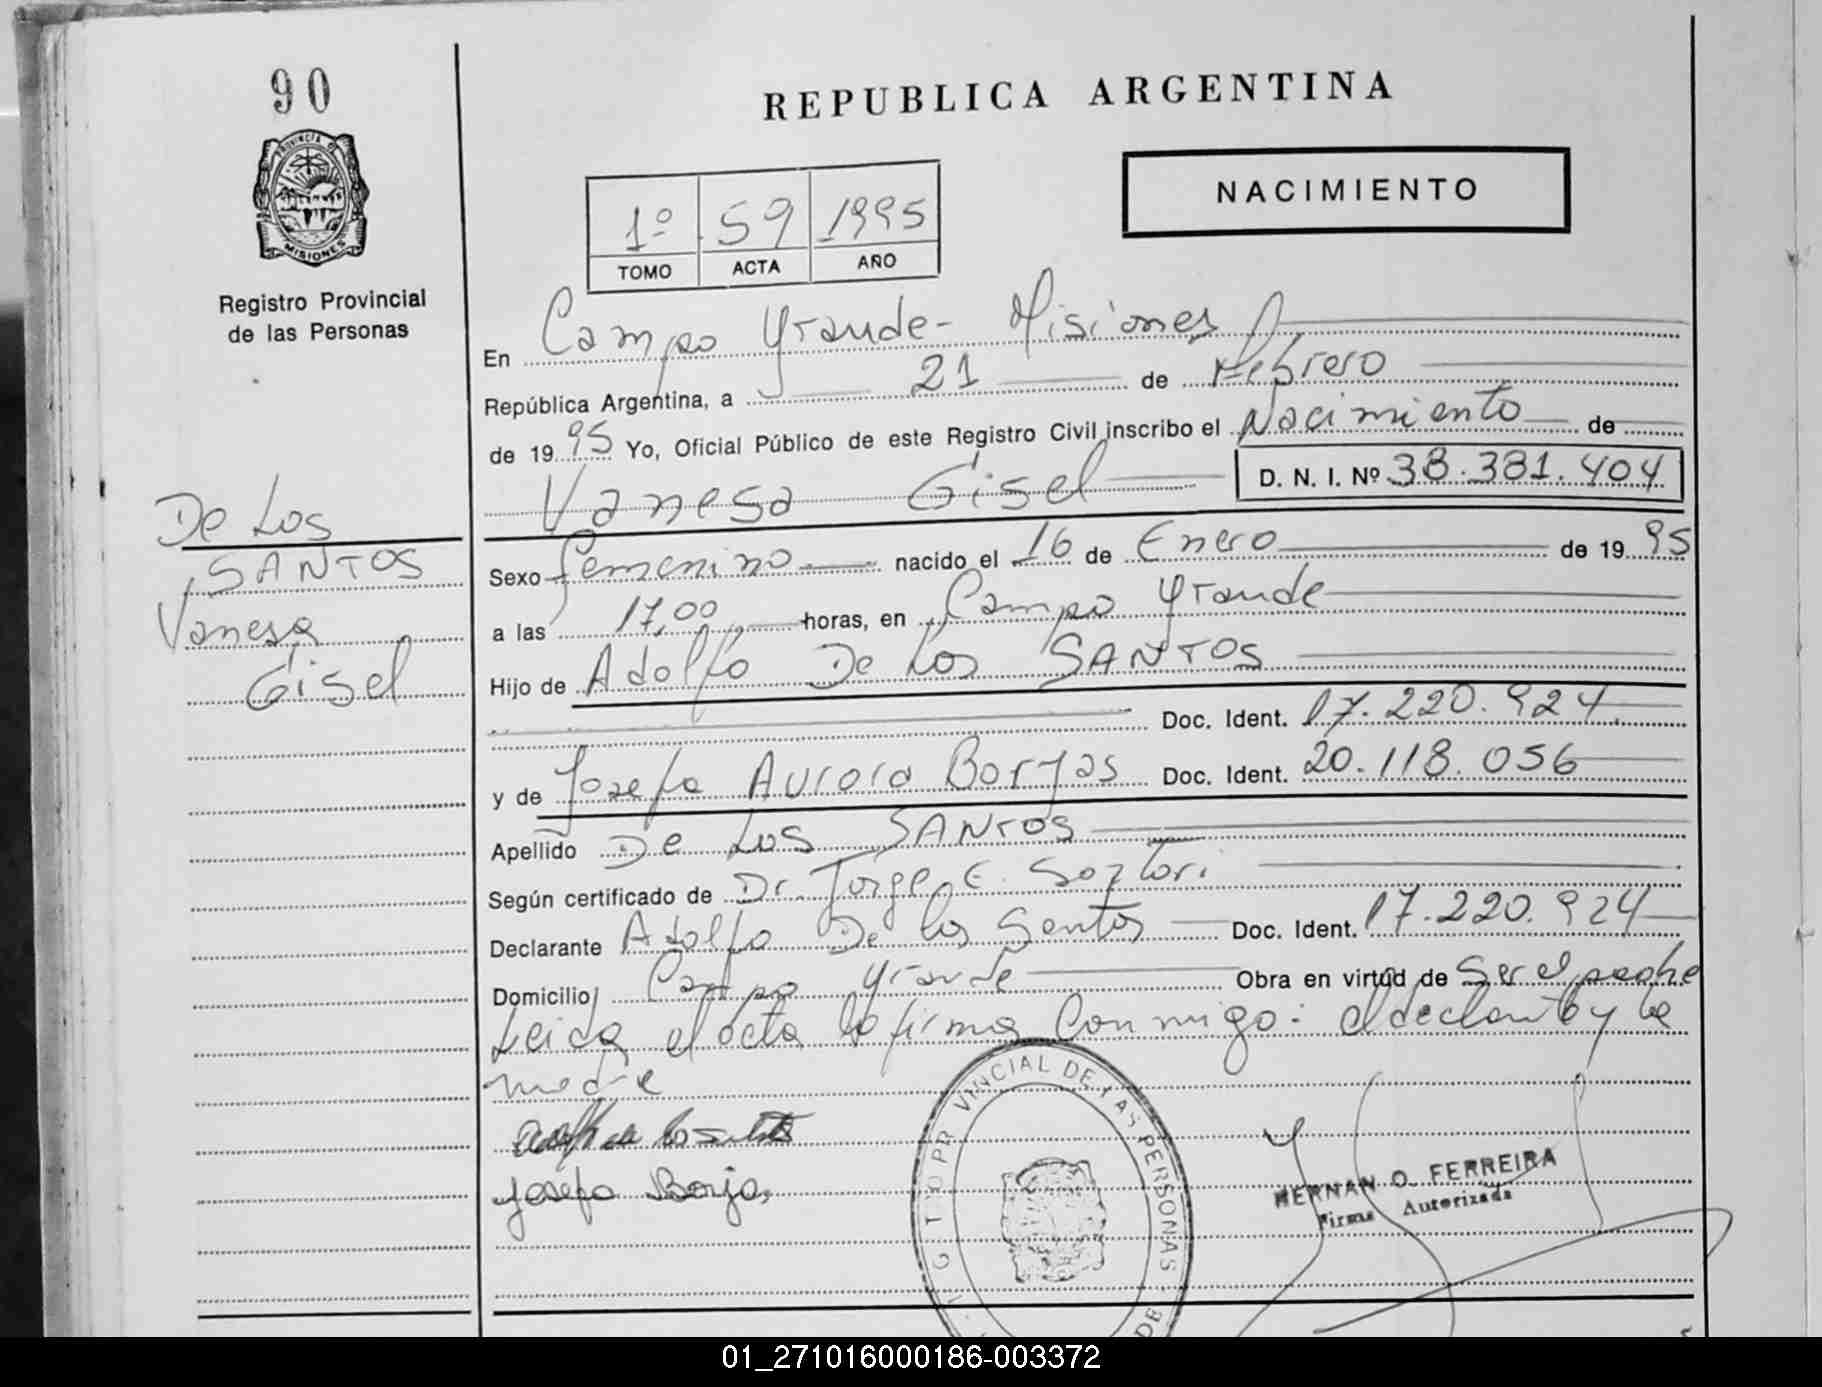 90
PROVINCIA DE
MISIONES
Registro Provincial
de las Personas
REPUBLICA ARGENTINA
NACIMIENTO
1º 59 1995
TOMO ACTA AÑO
En Campo Grande - Misiones
República Argentina, a 21 de Febrero
de 1995 Yo, Oficial Público de este Registro Civil inscribo el Nacimiento de
Vanesa Gisel D. N. I. Nº 38.381.404
De Los
SANTOS
Vanesa
Gisel
Sexo femenino nacido el 16 de Enero de 1995
a las 17,00 horas, en Campo Grande
Hijo de Adolfo De Los SANTOS
Doc. Ident. 17.220.924
y de Josefa Aurora Borjas Doc. Ident. 20.118.056
Apellido De Los SANTOS
Según certificado de Dr. Jorge E.
Declarante Adolfo De los Santos Doc. Ident. 17.220.924
Domicilio Campo Grande Obra en virtud de Ser el padre
Leida el acta la firma Conmigo: el declarante y la
madre
Josefa Borja
VINCIAL DE LAS PERSONAS
HERNAN O. FERREIRA
Firma Autorizada
01_271016000186-003372